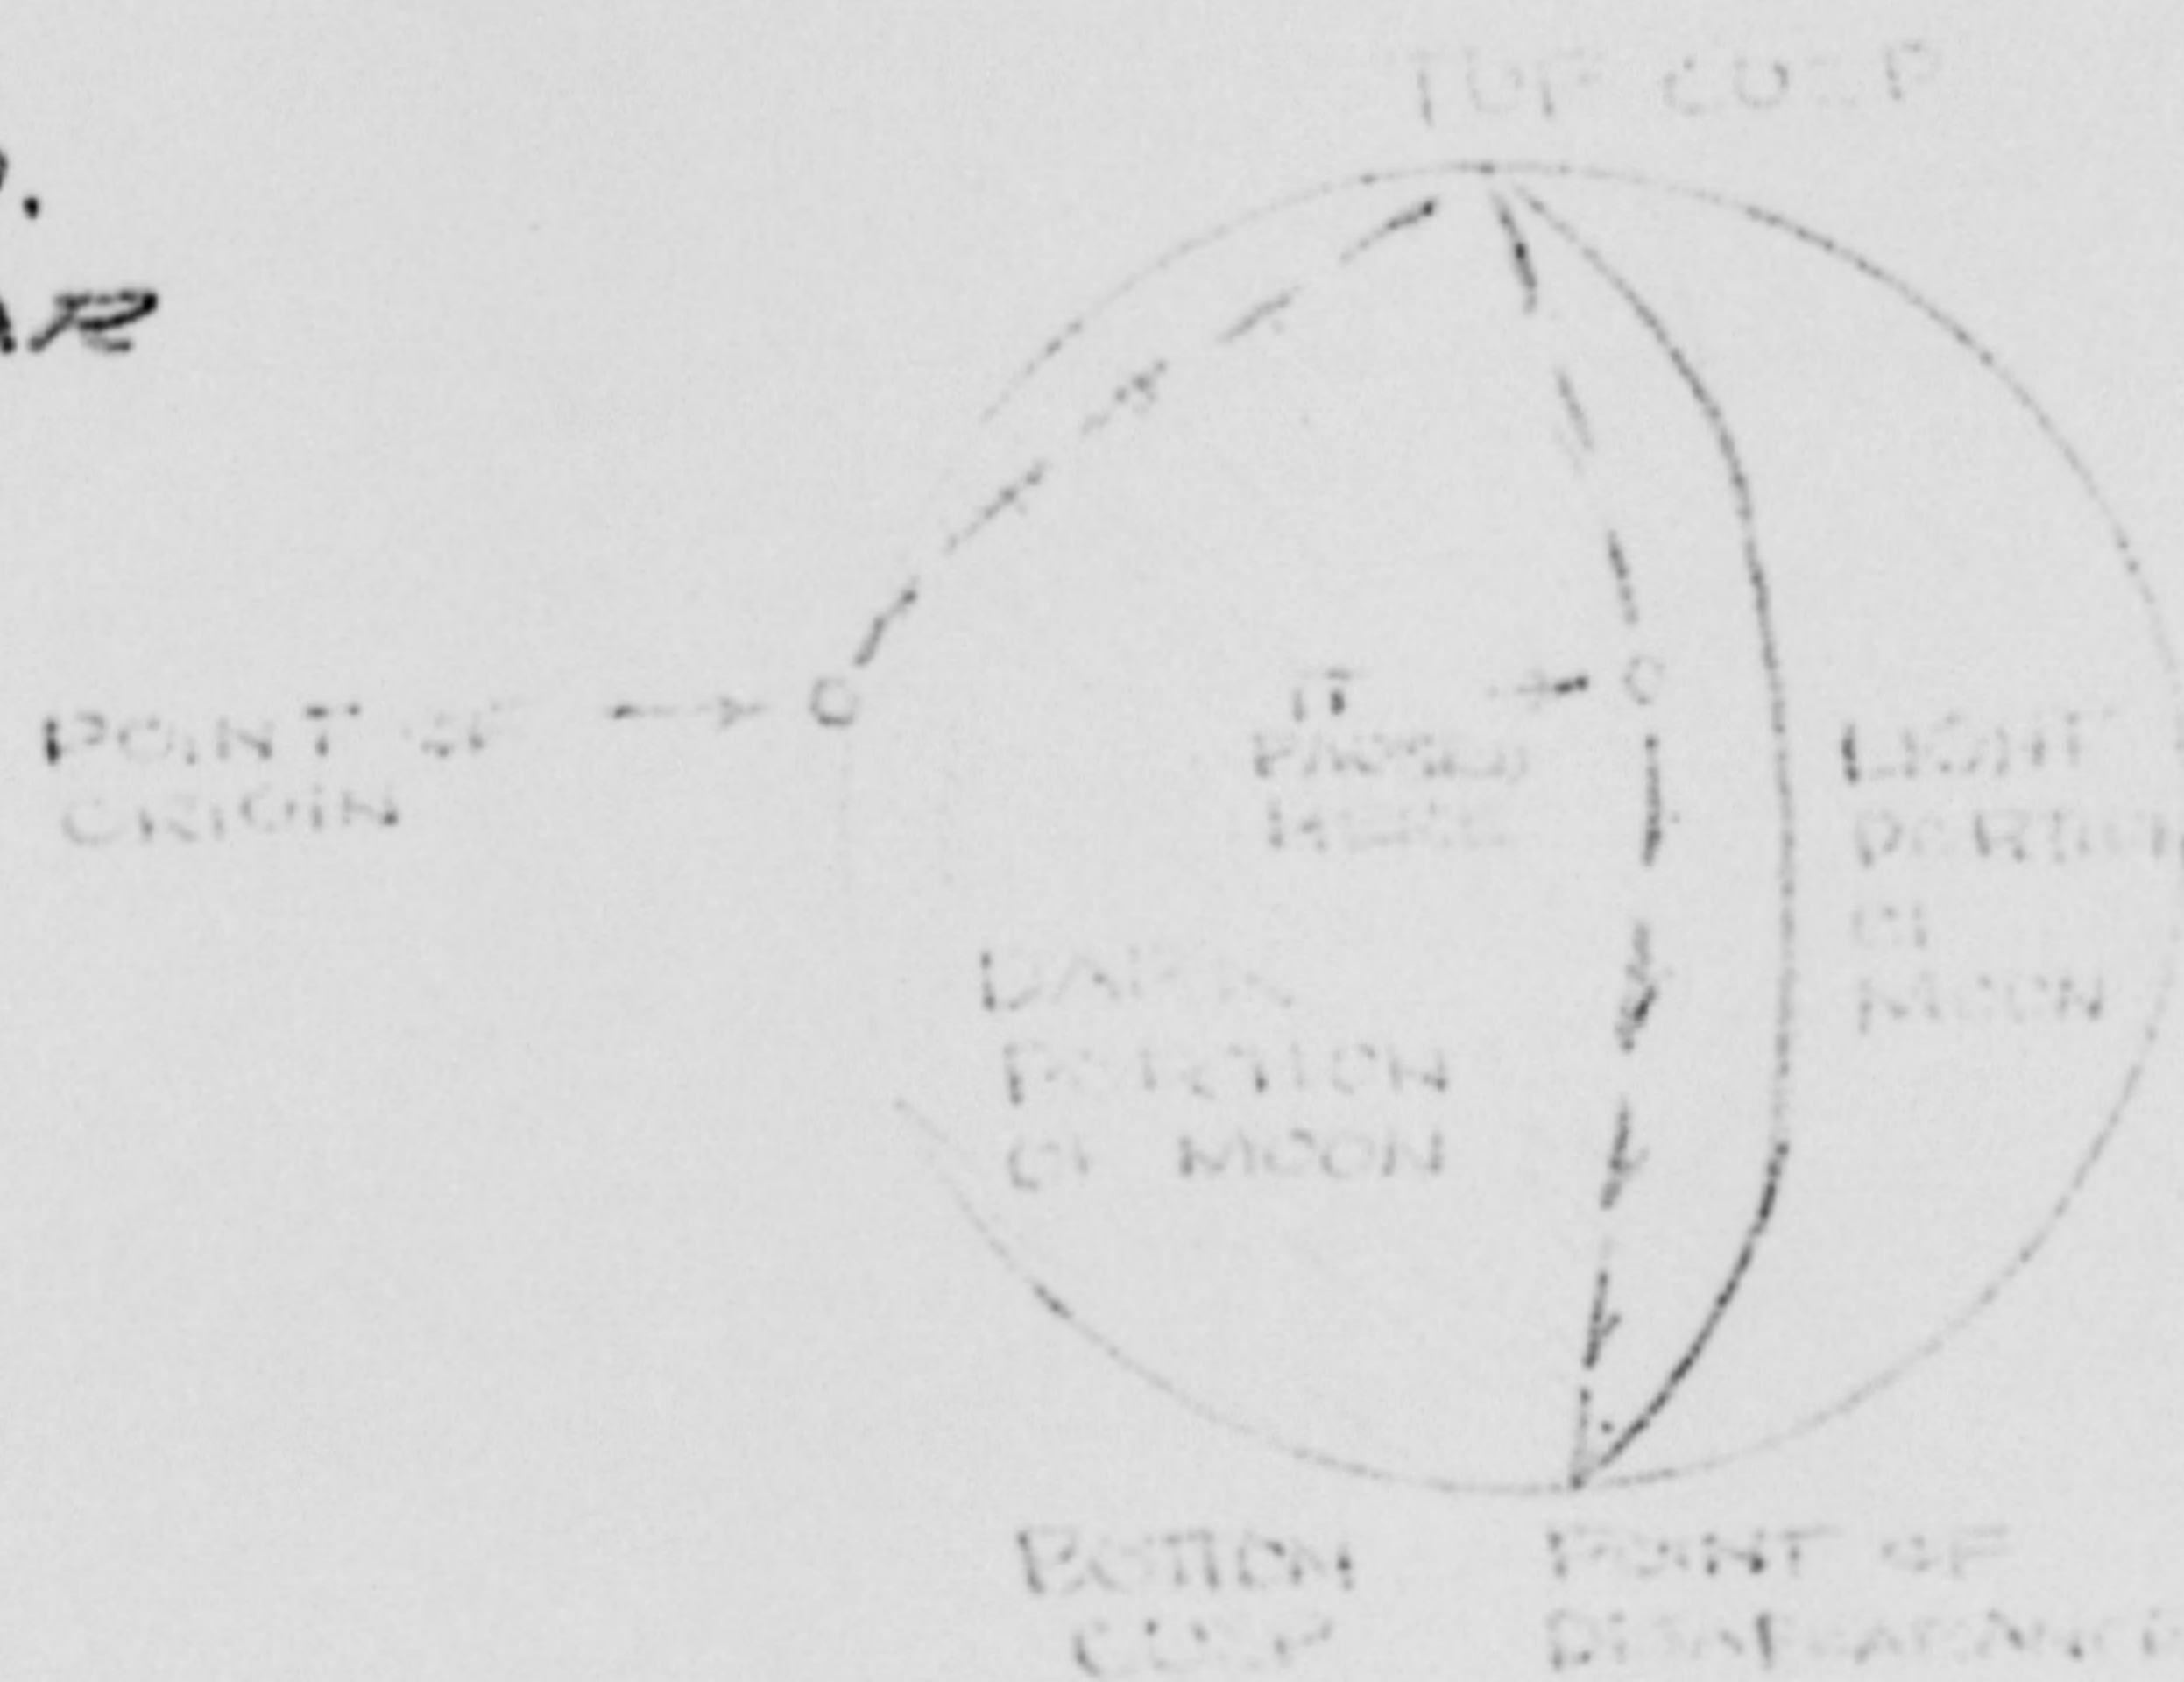 TOP CUSP
POINT OF
ORIGIN
IT
PASSED
HERE
LIGHT
PORTION
OF
MOON
DARK
PORTION
OF MOON
BOTTOM
CUSP
POINT OF